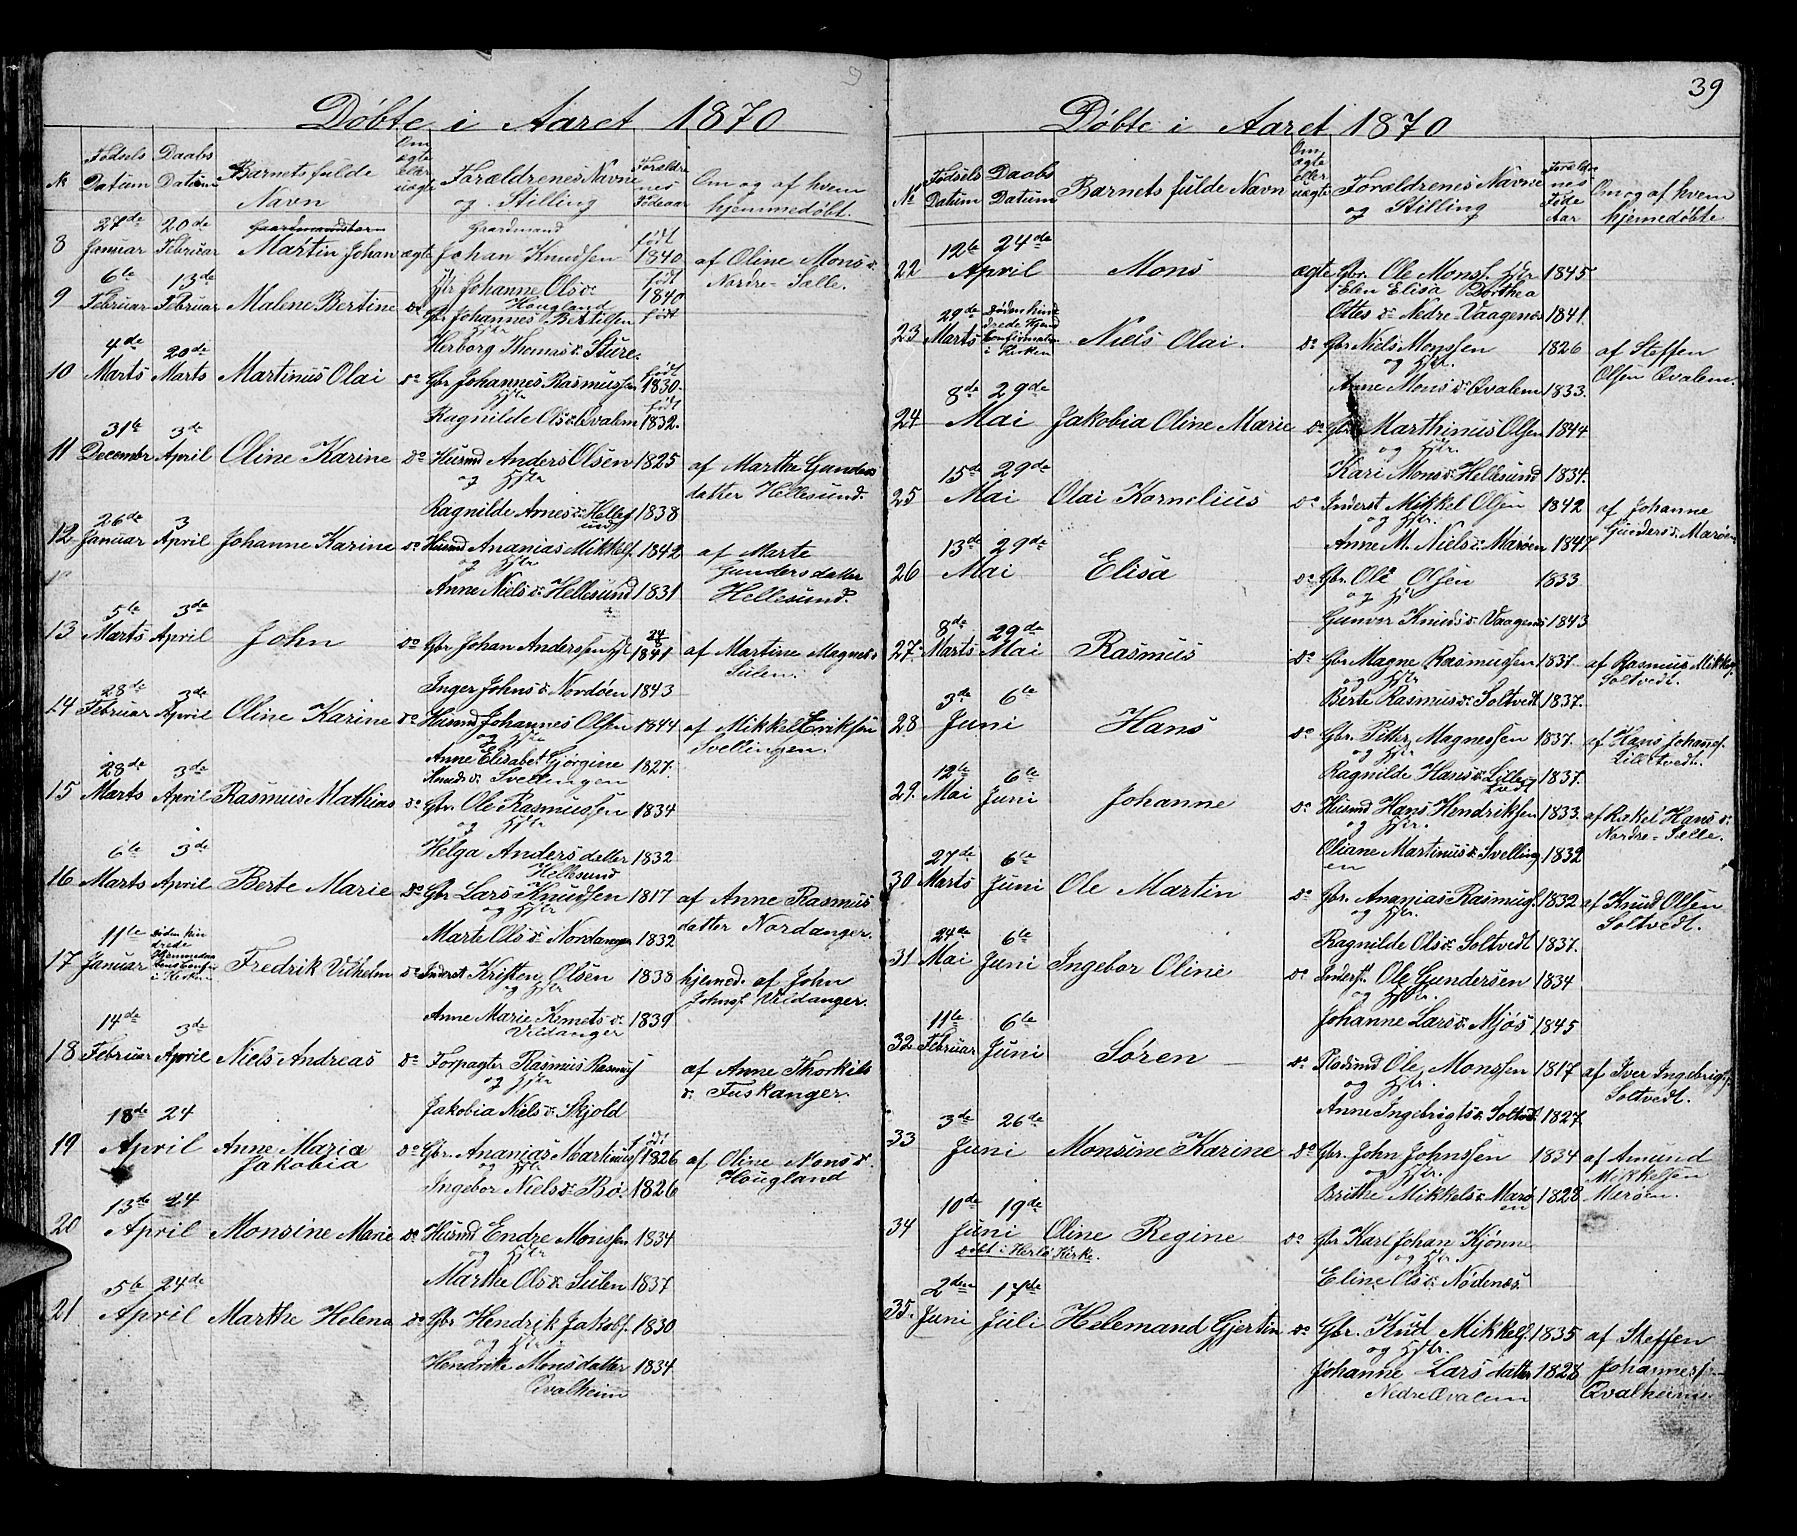 39
Døbte i Aaret 1870
No
Fødsels Datum
Daabs Datum
Barnets fulde Navn
Om ægte eller uægte
Forældrenes Navne og Stilling
Forældrenes Fødeaar
Om og af hvem hjemmedøbt.
8 27de Januar 20de Februar Martin Johan ægte Gaardmand Johan Knudsen født 1840 af Oline Mons d.
Johanne Ols d. Hougland født 1840 Nordre-Sælle.
9 6te Februar 13de Februar Malene Bertine do Gbr Johannes Bertilsen født
Hstr Herborg Thomas d. Sture.
10 4de Marts 20de Marts Martinus Olai do Gbr Johannes Rasmussen født 1830.
Hstr Ragnilde Ols d. Qvalem født 1832.
11 31te Decembr 3de April Oline Karine do Husmd Anders Olsen 1825 af Marthe Gunders
og Hstr datter Hellesund.
Ragnilde Arnes d. Hellesund 1838
12 26de Januar 3 April Johanne Karine do Husmd Ananias Mikkels. 1842 af Marte
og Hstr Gundersdatter
Anne Niels d. Hellesund 1831 Hellesund.
13 5te Marts 3de April John do Gbr Johan Anderssen 1841 af Martine Magnes d.
Inger Johns d. Nordøen 1843 Sulen.
14 28de Februar 3de April Oline Karine do Husmd Johannes Olsen 1844 af Mikkel Eriksen
og Hstr Svellingen.
Anne Elisabet Gjorgine 1827.
Knuds d. Svellingen
15 28de Marts 3de April Rasmus Mathias do Gbr. Ole Rasmussen 1834
og Hstr
Helga Andersdatter 1832
Hellesund
16 6te Marts 3de April Berte Marie do Gbr Lars Knudsen 1817 af Anne Rasmus
og Hstr datter Nordanger.
Marte Ols d. Nordanger 1832
17 11te Januar Fredrik Vilhelm do Inderst Kristen Olsen 1838 hjemed. af John
og Hstr Johns. Vildanger.
Anne Marie Kemets d. 1839
Vildanger
18 14de Februar 3de April Niels Andreas do Forpagter Rasmus Rasmus. af Anne Thorkils
og Hstr d. Fuskanger.
Jakobia Niels d. Skjold
19 18de 24 April Anne Maria Jakobia do Gbr. Ananias Martinus. født 1826 af Oline Mons d.
og Hstr Hougland
Ingebor Niels d. Bø. 1826
20 13de 24 April Monsine Marie do Husmd Endre Monssen 1834
og Hstr
Marthe Ols d. Sulen 1837
21 5te 24de April Marthe Helena do Gbr Hendrik Jakobs. 1830
og Hstr
Hendrike Monsdatter 1834
Qvalheim
Døbte i Aaret 1870
No
Fødsels Datum
Daabs Datum
Barnets fulde Navn
Om ægte eller uægte
Forældrenes Navne og Stilling
Forældrenes Føde Aar
Om og af hvem hjemmedøbte
22 12te 24de April Mons ægte Gbr. Ole Mons. Hstr 1845
Elen Elisa Dorthea
Ottes d. Nedre-Vaagenes 1841.
23 29de Marts Niels Olai. do Gbr Niels Monssen 1826 af Steffen
og Hstr. Olsen Qvalem.
Anne Mons d. Qvalem 1833.
24 8de 29de Mai Jakobia Oline Marie do Gbr. Marthinus Olsen 1844
og Hstr.
Kari Mons d. Hellesund 1834.
25 15de 29de Mai Olai Kornelius do Inderst Mikkel Olsen 1842 af Johanne
og Hstr. Gunders d. Marøen
Anne M. Niels d. Marøen 1847
26 13de 29de Mai Elisa do Gbr. Ole Olsen 1833
og H.
Gunver Knuds d. Vaagenes 1843
27. 8de Marts 29de Mai Rasmus do Gbr Magne Rasmussen 1837. af Rasmus Mikkels.
og Hstr Soltvedt.
Berte Rasmus d. Soltvedt 1837.
28 3de 6te Juni Hans do Gbr. Peter Magnessen 1837. af Hans Johans.
og Hstr Lilletvedt.
Ragnilde Hans d. Lilletvedt 1837.
29. 12te Mai 6te Juni Johanne do Husmd Hans Hendriksen 1833. af Rakel Hans d.
og Hstr. Nordre-Sælle.
Oliane Martinus d. Svellingen 1832
30 27de Marts 6te Juni Ole Martin do Gbr. Ananias Rasmus. 1832 af Knud Olsen
og Hstr. Soltvedt.
Ragnilde Ols d. Soltvedt 1837.
31. 24de Mai 6te Juni Ingebor Oline do Inderst. Ole Gundersen 1834
og Hstr.
Johanne Lars d. Mjøs 1845
32 11te Februar 6te Juni Søren do Pladsmd Ole Monssen 1817 af Iver Ingebrigts.
og Hstr. Soltvedt.
Anne Ingebrigts d. Soltvedt 1827.
33 3de 26de Juni Monsine Karine do Gbr. John Johnssen 1834 af Amund
og Hstr. Mikkelsen
Brithe Mikkels d. Marøen 1828 Merøen.
34 10de 19de Juni Oline Regine do Gbr Karl Johan Kjønne
døbt i Herlø Kirke. og Hstr
Eline Ols d. Nødenæs
35. 2den Juni 17de Juli Helemand Gjertin do Gbr. Knud Mikkels. 1835 af Steffen
og Hstr. Johanness.
Johanne Larsdatter 1828 Qvalheim
Nedre Qvalem